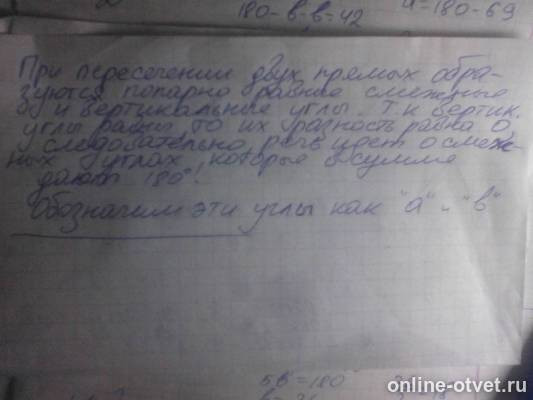 180-в-в=42
а=180-69
При пересечении двух прямых обра-
зуются попарно равные смежные
и вертикальные углы. Т.к вертик.
углы равны, то их разность равна 0,
следовательно, речь идет о смеж-
ных углах, которые в сумме
дают 180°!
Обозначим эти углы как "а" и "в"
5в=180
online-otvet.ru